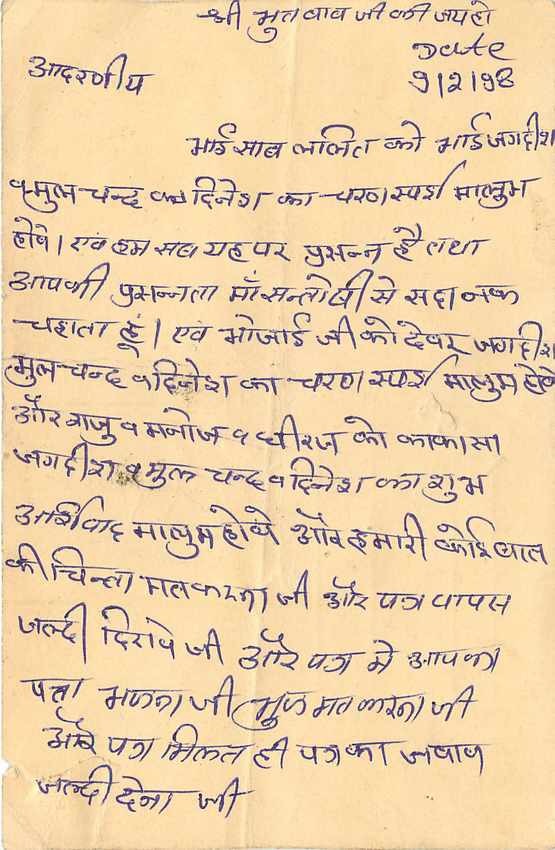 श्री भुत बाव जी की जय हो
Date
9/2/98
आदरणीय
भाई साब ललित को भाई जगदीश
व मुल चन्द व दिनेश का चरण स्पर्श मालुम
होवे। एवं हम सब यहा पर प्रसन्न है तथा
आपकी प्रसन्नता माँ सन्तोषी से सदा नेक
चहाता हूं। एवं भोजाई जी को देवर जगदीश
मुल चन्द व दिनेश का चरण स्पर्श मालुम होवे
और राजु व मनोज व धीरज को काकासा
जगदीश व मुल चन्द व दिनेश का शुभ
आर्शिवाद मालुम होवे और हमारी कोई बात
की चिन्ता मत करना जी और पत्र वापस
जल्दी दिरावे जी और पत्र मे आपका
पत्ता भेजना जी भुल मत करना जी
और पत्र मिलत ही पत्र का जवाब
जल्दी देना जी